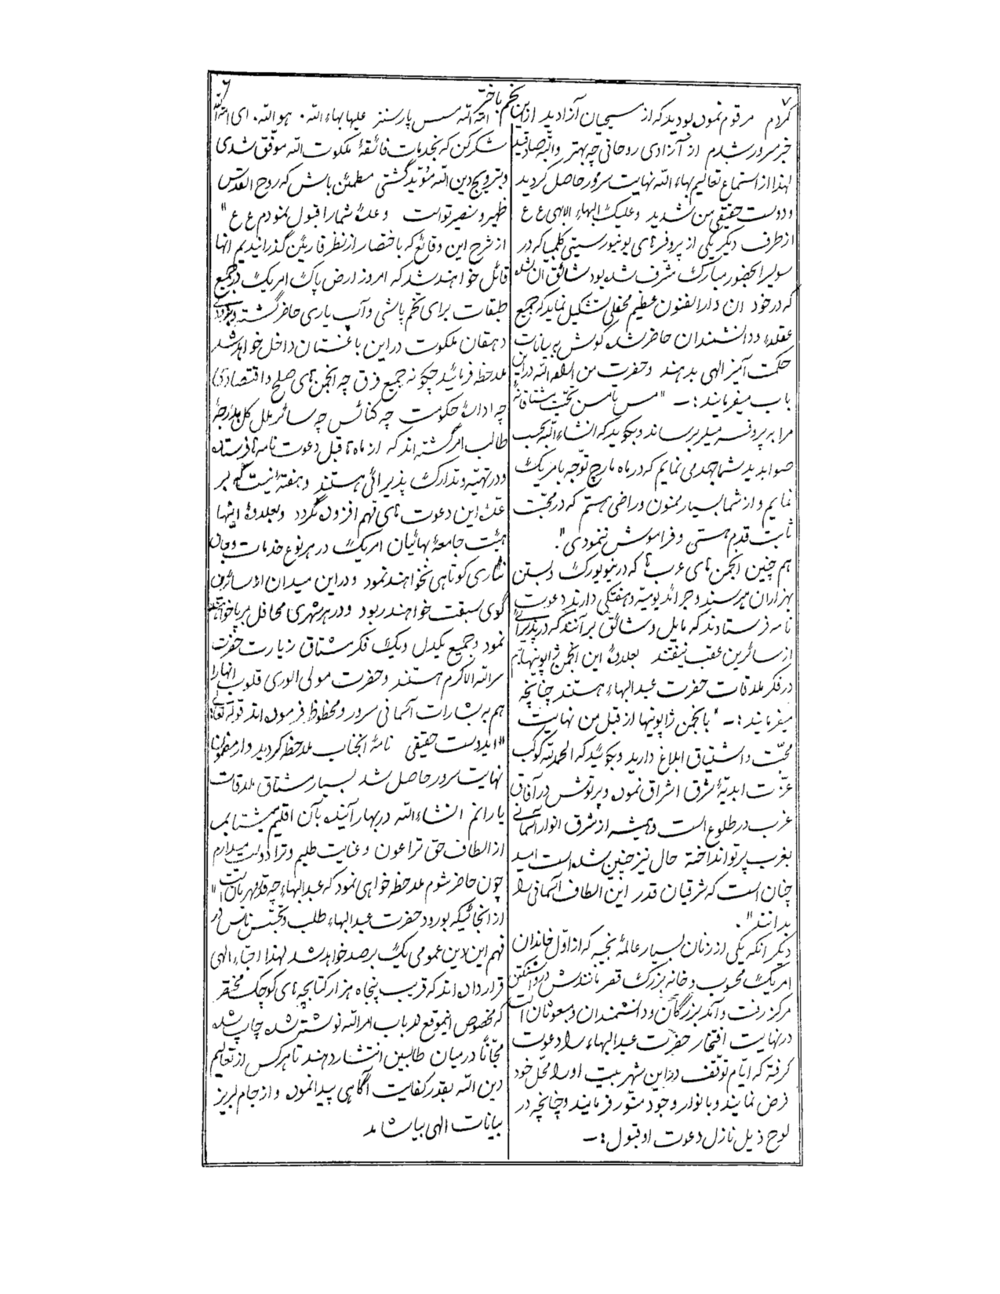 ۷
نجم باختر
۶
کردم مرقوم نموده بودید که از مسیحیان آزادید ازین
خبر مسرور شدم از آزادی روحانی چه بهتر
لهذا از استماع تعالیم بهاءالله نهایت سرور حاصل کردید
و دوست حقیقی من شدید وعلیک البهاء الابهی ع ع
از طرف دیگر یکی از پروفسرهای یونیورسیتی کلمبیا که در
سویس بحضور مبارک مشرف شده بود شائق آن شده
که در خود آن دارالفنون عظیم محفلی تشکیل نماید که جمیع
عقلاء و دانشمندان حاضر شده گوش به بیانات
حکمت آمیز الهی بدهند و حضرت من اراده الله در این
باب میفرمایند :ــ "مس تامسن تحیت مشتاقانه
مرا به پرفسر میلر برساند و بگوید که انشاءالله بحسب
صوابدید شما جهد می نمایم که در ماه مارچ توجه بامریک
نمایم و از شما بسیار ممنون و راضی هستم که در محبت
ثابت قدم هستی و فراموش ننمودی".
هم چنین انجمن های عرب ها که در نیویورک و بستن
بهزاران میرسند و جرائد یومیه و هفتگی دارند دعوت
نامه فرستادند که مایل و شائق برآنند که در پذیرائی
از سائرین عقب نیفتند بعلاوه این انجمن ژاپونیها هم
در فکر ملاقات حضرت عبدالبهاء هستند چنانچه
میفرمایند :ــ "بانجمن ژاپونیها از قبل من نهایت
محبت و اشتیاق ابلاغ دارید و بگوئید که الحمدلله کوکب
عزت ابدیه شرق اشراق نموده و پرتوش در آفاق
غرب در طلوع است و همیشه از شرق انوار آسمانی
بغرب پرتو انداخته حال نیز چنین شده است امید
چنان است که شرقیان قدر این الطاف آسمانی را
بدانند".
دیگر آنکه یکی از زنان بسیار عالمه نجیبه که از اول خاندان
امریک محسوب و خانه بزرگ قصر مانندش در واشنگتن
مرکز رفت و آمد بزرگان و دانشمندان و مبعوثان است
در نهایت افتخار حضرت عبدالبهاء را دعوت
کرده که ایام توقف در این شهر بیت او را محل خود
فرض نمایند و بانوار وجود منور فرمایند و چنانچه در
لوح ذیل نازل دعوت او قبول :ــ
امة الله مس پارسنز علیها بهاءالله . هوالله . ای امة الله
شکر کن که بخدمات فائقه ملکوت الله موفق شدی
و بترویج دین الله مؤید گشتی مطمئن باش که روح القدس
ظهیر و نصیر تو است وعده شما را قبول نمودم ع ع"
از شرح این وقائع که باختصار از نظر قارئین گذراندیم آنها
قائل خواهند شد که امروز ارض پاک امریک در جمیع
طبقات برای تخم پاشی و آب یاری حاضر گشته
دهقان ملکوت در این باغستان داخل خواهد شد
ملاحظه فرمائید چگونه جمیع فرق چه انجمن های صلح و اقتصادی
چه ادارهٔ حکومت چه کنائس چه سائر ملل کل بدرجهٔ
طالب امر گشته اند که از ماه ها قبل دعوت نامه ها فرستاده
و در تهیه و تدارک پذیرائی هستند و هفته نیست که بر
عدد این دعوت های مهم افزون نگردد و بعلاوه اینها
هیئت جامعهٔ بهائیان امریک در هر نوع خدمات و جان
نثاری کوتاهی نخواهند نمود و در این میدان از سائرین
گوی سبقت خواهند ربود و در هر شهری محافل برپا خواهند
نمود و جمیع یکدل و یک فکر مشتاق زیارت حضرت
سرالله الاکرم هستند و حضرت مولی الوری قلوب آنها را
هم به بشارات آسمانی مسرور و محظوظ فرموده اند قوله تعالی
"ای دوست حقیقی نامهٔ آنجناب ملاحظه گردید و از مضمون
نهایت سرور حاصل شد بسیار مشتاق ملاقات
یارانم انشاءالله در بهار آینده بآن اقلیم میشتابم
از الطاف حق ترا عون و عنایت طلبم و ترا دوست میدارم
چون حاضر شوم ملاحظه خواهی نمود که عبدالبهاء چه قدر مهربان است"
از آنجائیکه بورود حضرت عبدالبهاء طلب و تجسس ناس در
فهم این دین عمومی یک بر صد خواهد شد لهذا احباء الهی
قرار داده اند که قریب پنجاه هزار کتابچه های کوچک مختصر
که مخصوص این موقع در باب امرالله نوشته شده چاپ شده
مجاناً در میان طالبین انتشار دهند تا هر کس از تعالیم
دین الله بقدر کفایت آگاهی پیدا نموده و از جام لبریز
بیانات الهی بیاشامد